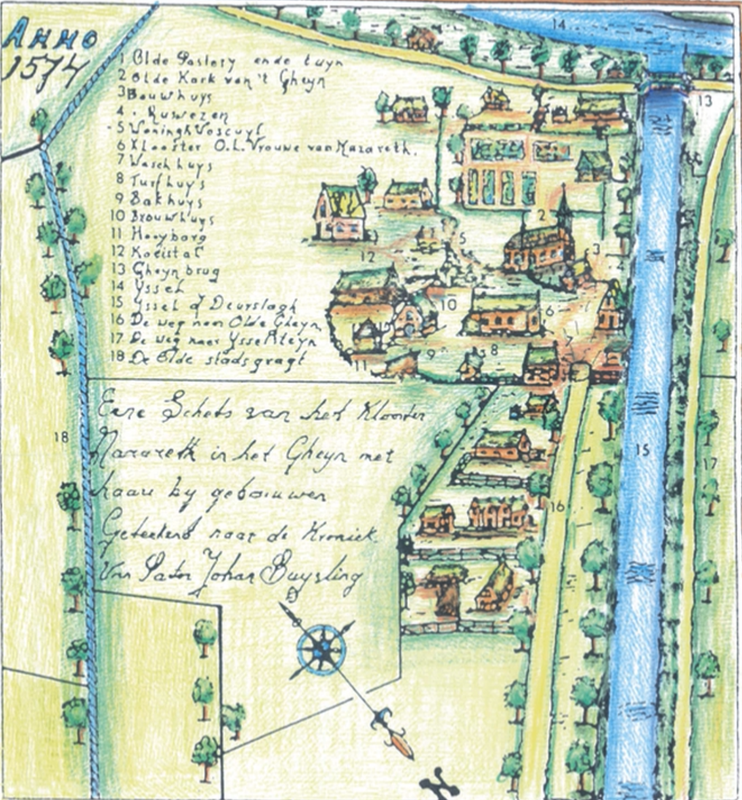 Anno
1574
1 Olde Pastery ende tuyn
2 Olde Kark van 't Gheyn
3 Bouwhuys
4 . Ruwezen
5 Woningh Voscuyl
6 Klooster O.L. Vrouwe van Nazareth.
7 Waschhuys
8 Turfhuys
9 Bakhuys
10 Brouwhuys
11 Hooyberg
12 Koeistal
13 Gheynbrug
14 Yssel
15 Yssel d' Deurslagh
16 De weg naar Olde Gheyn
17 De weg naar Ysselsteyn
18 De olde stadsgragt
Eene Schets van het Klooster
Nazareth in het Gheyn met
haare by gebouwen
Getekend naar de Kroniek
Van Pater Johan Buysling
14
13
2
5
3
12
10
6
1
9
8
7
11
18
15
17
16
N